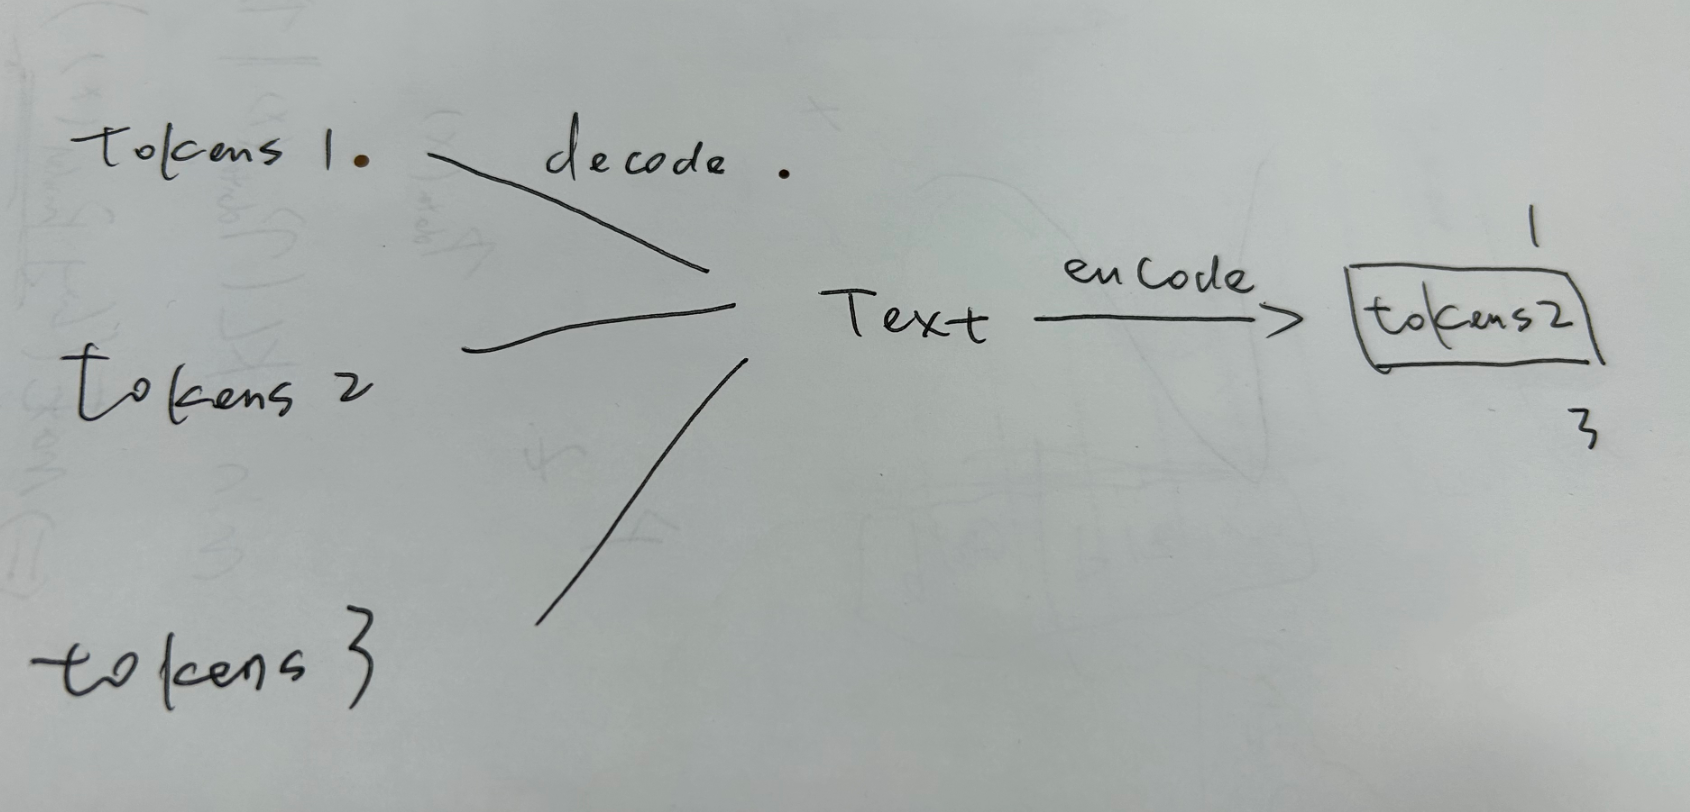 tokens 1.
decode.
tokens 2
tokens 3
Text
encode
1
tokens 2
3